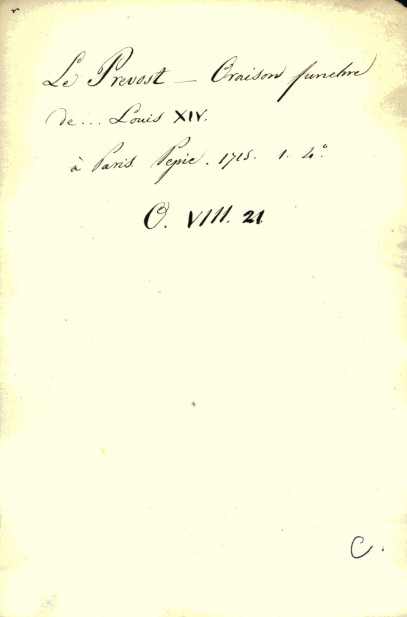 Le Prevost — Oraison funebre
de... Louis XIV.
à Paris. Pepie. 1715. 1. 4°.
O. VIII. 21
C.